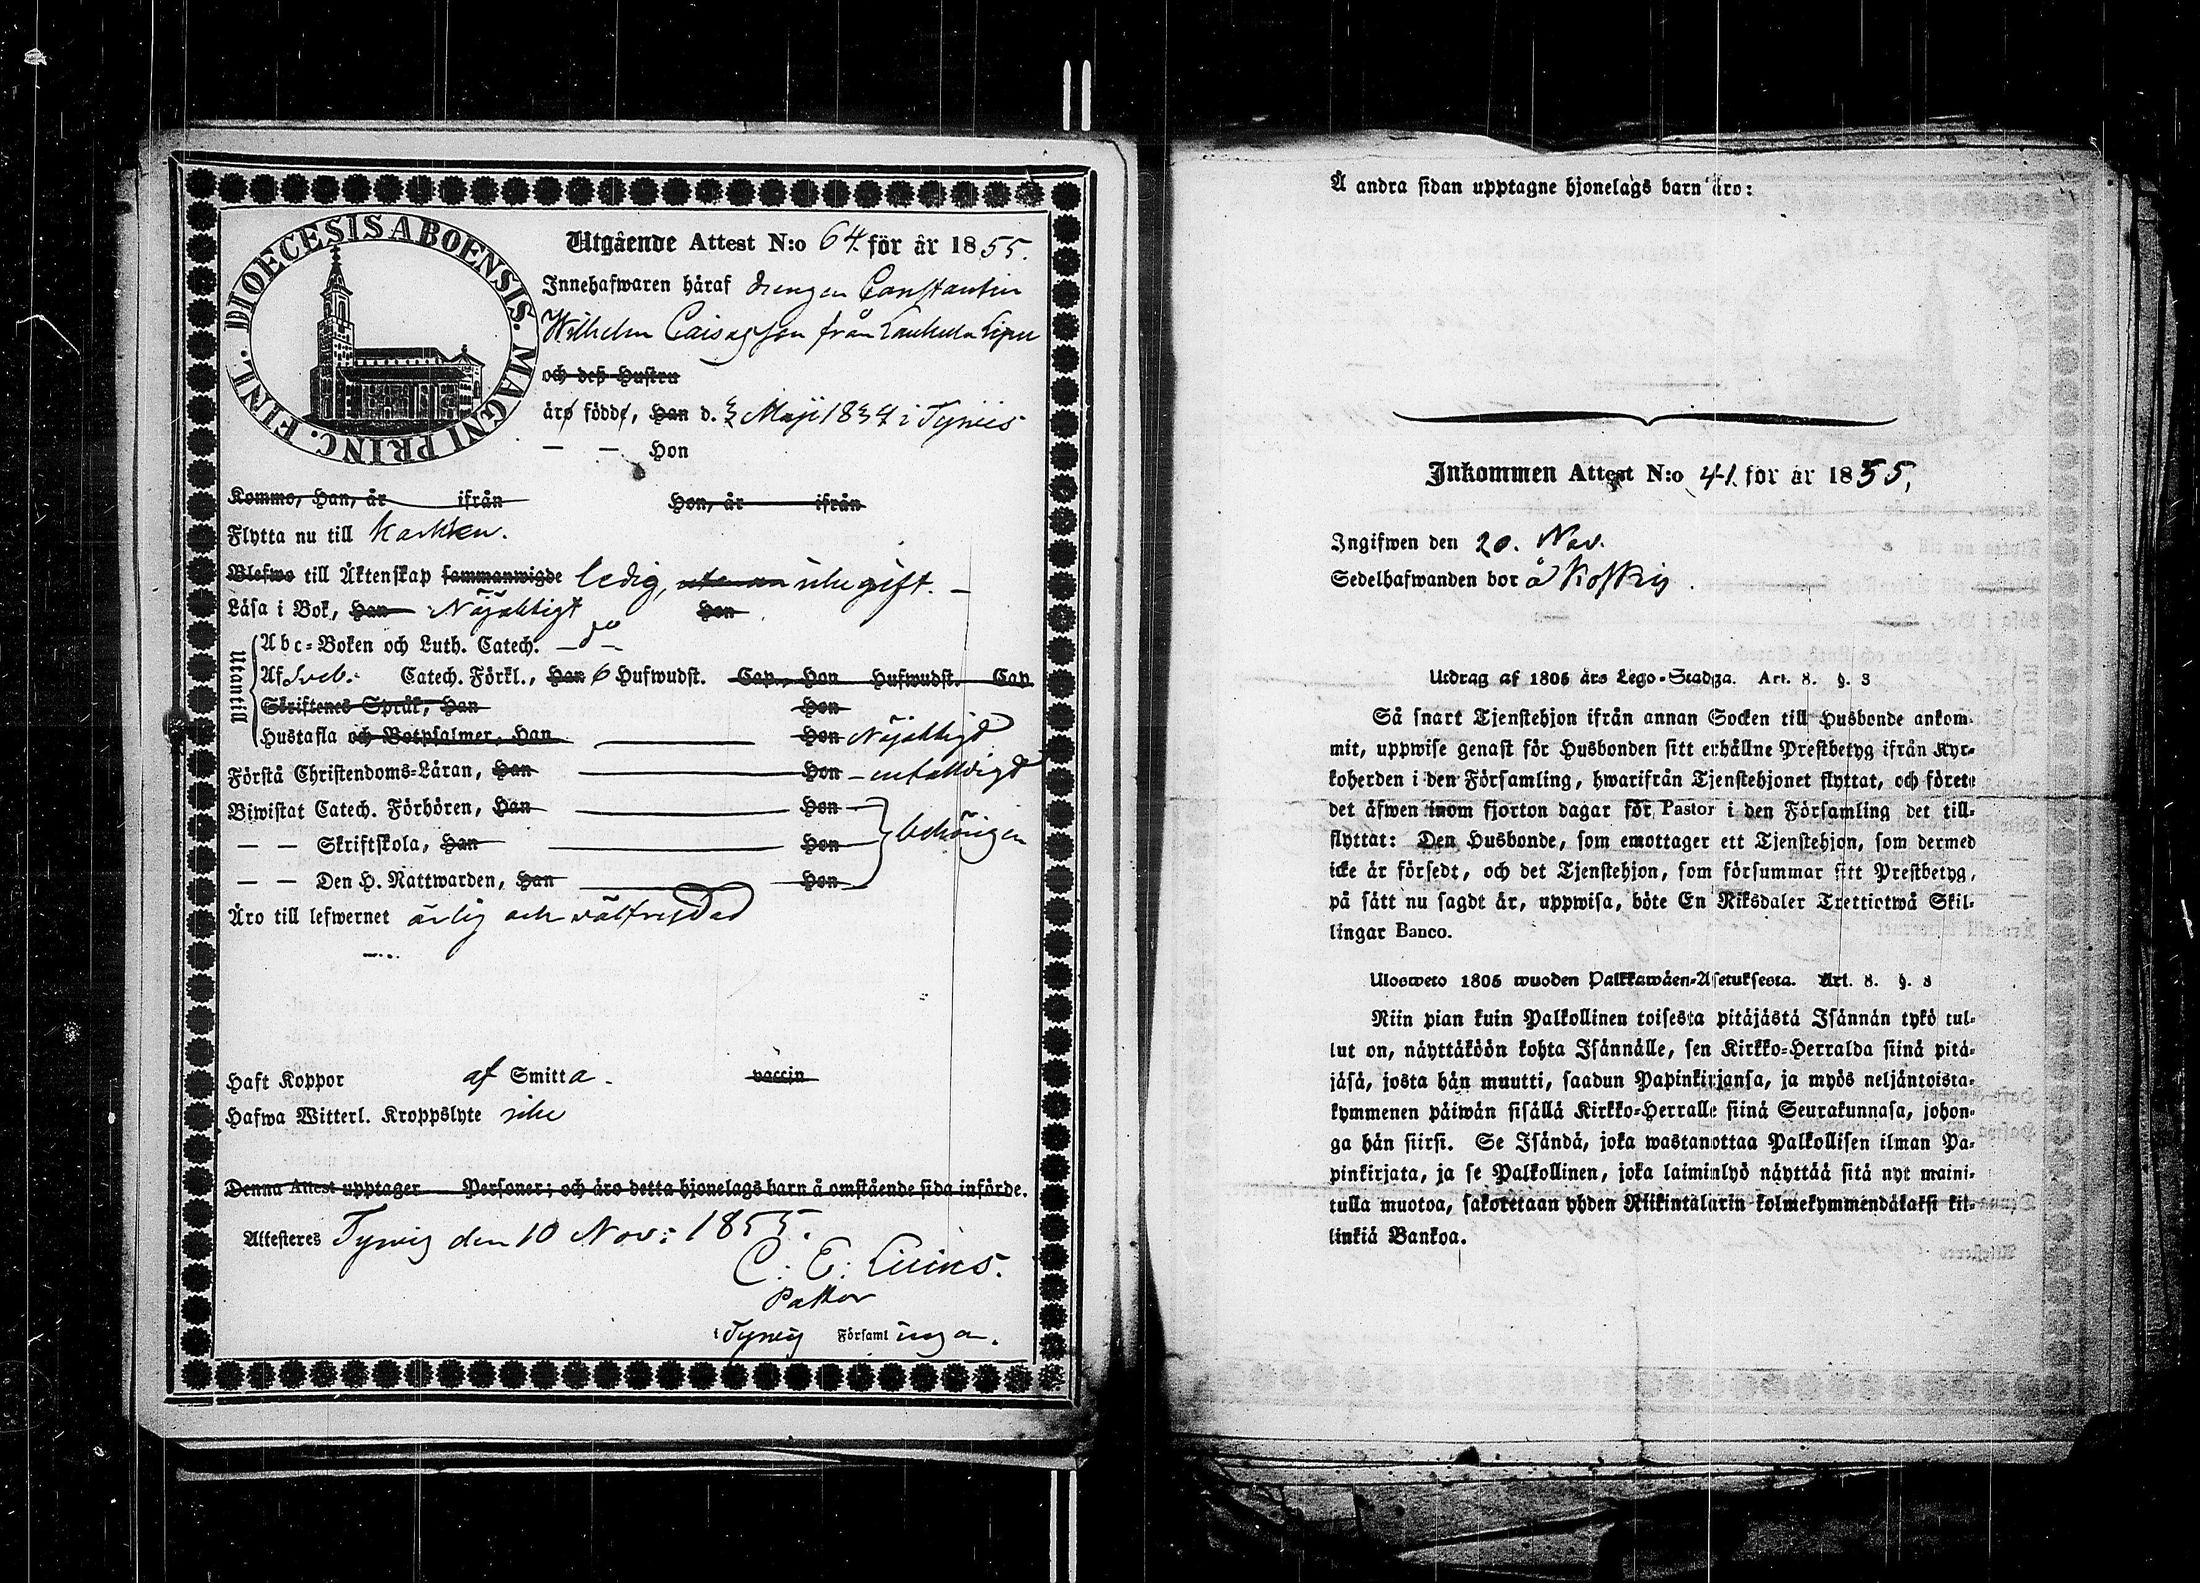 DIOECESIS ABOENSIS. MAGNI PRINC. FINL.
Utgående Attest N:o 64. för år 1855.
Innehafwaren häraf drengen Constantin
Wilhelm från Laukula
och deß Hustru
äro födde, Han d. 3 Maji 1834 i Tyrvis
— — Hon
Kommo, Han, år ifrån Hon, år ifrån
Flytta nu till Karkku.
Blefwo till Äktenskap sammanwigde ledig, icke gift. —
Läsa i Bok, Han Nöjaktigt Hon
Utantill
Abc-Boken och Luth. Catech. — do —
Af Sveb: Catech. Förkl., Han 6 Hufwudst. Cap., Hon Hufwudst. Cap
Skriftenes Språk, Han Hon
Hustafla och Botpsalmer, Han Hon Nöjaktigt
Förstå Christendoms-Läran, Han Hon — enfaldigt
Biwistat Catech. Förhören, Han Hon
— — Skriftskola, Han Hon behörigen
— — Den H. Nattwarden, Han Hon
Äro till lefwernet ärlig och välfrejdad
Haft Koppor af Smitta. vaccin
Hafwa Witterl. Kroppslyte icke
Denna Attest upptager Personer; och äro detta hjonelags barn å omstående sida införde.
Attesteres Tyrvis den 10 Nov: 1855.
C: E:
Pastor
i Tyrvis Församlingen.
Å andra sidan upptagne hjonelags barn äro:
Inkommen Attest N:o 41. för år 1855,
Ingifwen den 20. Nov.
Sedelhafwanden bor å Koskis.
Utdrag af 1805 års Lego-Stadga. Art. 8. §. 3
Så snart Tjenstehjon ifrån annan Socken till Husbonde ankom-
mit, uppwise genast för Husbonden sitt erhållne Prestbetyg ifrån Kyr-
koherden i den Församling, hwarifrån Tjenstehjonet flyttat, och förete
det äfwen inom fjorton dagar för Pastor i den Församling det till-
flyttat: Den Husbonde, som emottager ett Tjenstehjon, som dermed
icke är försedt, och det Tjenstehjon, som försummar sitt Prestbetyg,
på sätt nu sagdt är, uppwisa, böte En Riksdaler Trettiotwå Skil-
lingar Banco.
Ulosweto 1805 wuoden Palkkawäen-Asetuksesta. Art. 8. §. 3
Niin pian kuin Palkollinen toisesta pitäjästä Isännän tykö tul-
lut on, näyttäköön kohta Isännälle, sen Kirkko-Herralda siinä pitä-
jäsä, josta hän muutti, saadun Papinkirjansa, ja myös neljäntoista-
kymmenen päiwän sisällä Kirkko-Herralle siinä Seurakunnasa, johon-
ga hän siirsi. Se Isändä, joka wastanottaa Palkollisen ilman Pa-
pinkirjata, ja se Palkollinen, joka laiminlyö näyttää sitä nyt maini-
tulla muotoa, sakotetaan yhden Riikintalarin kolmekymmendäkaksi kil-
linkiä Bankoa.